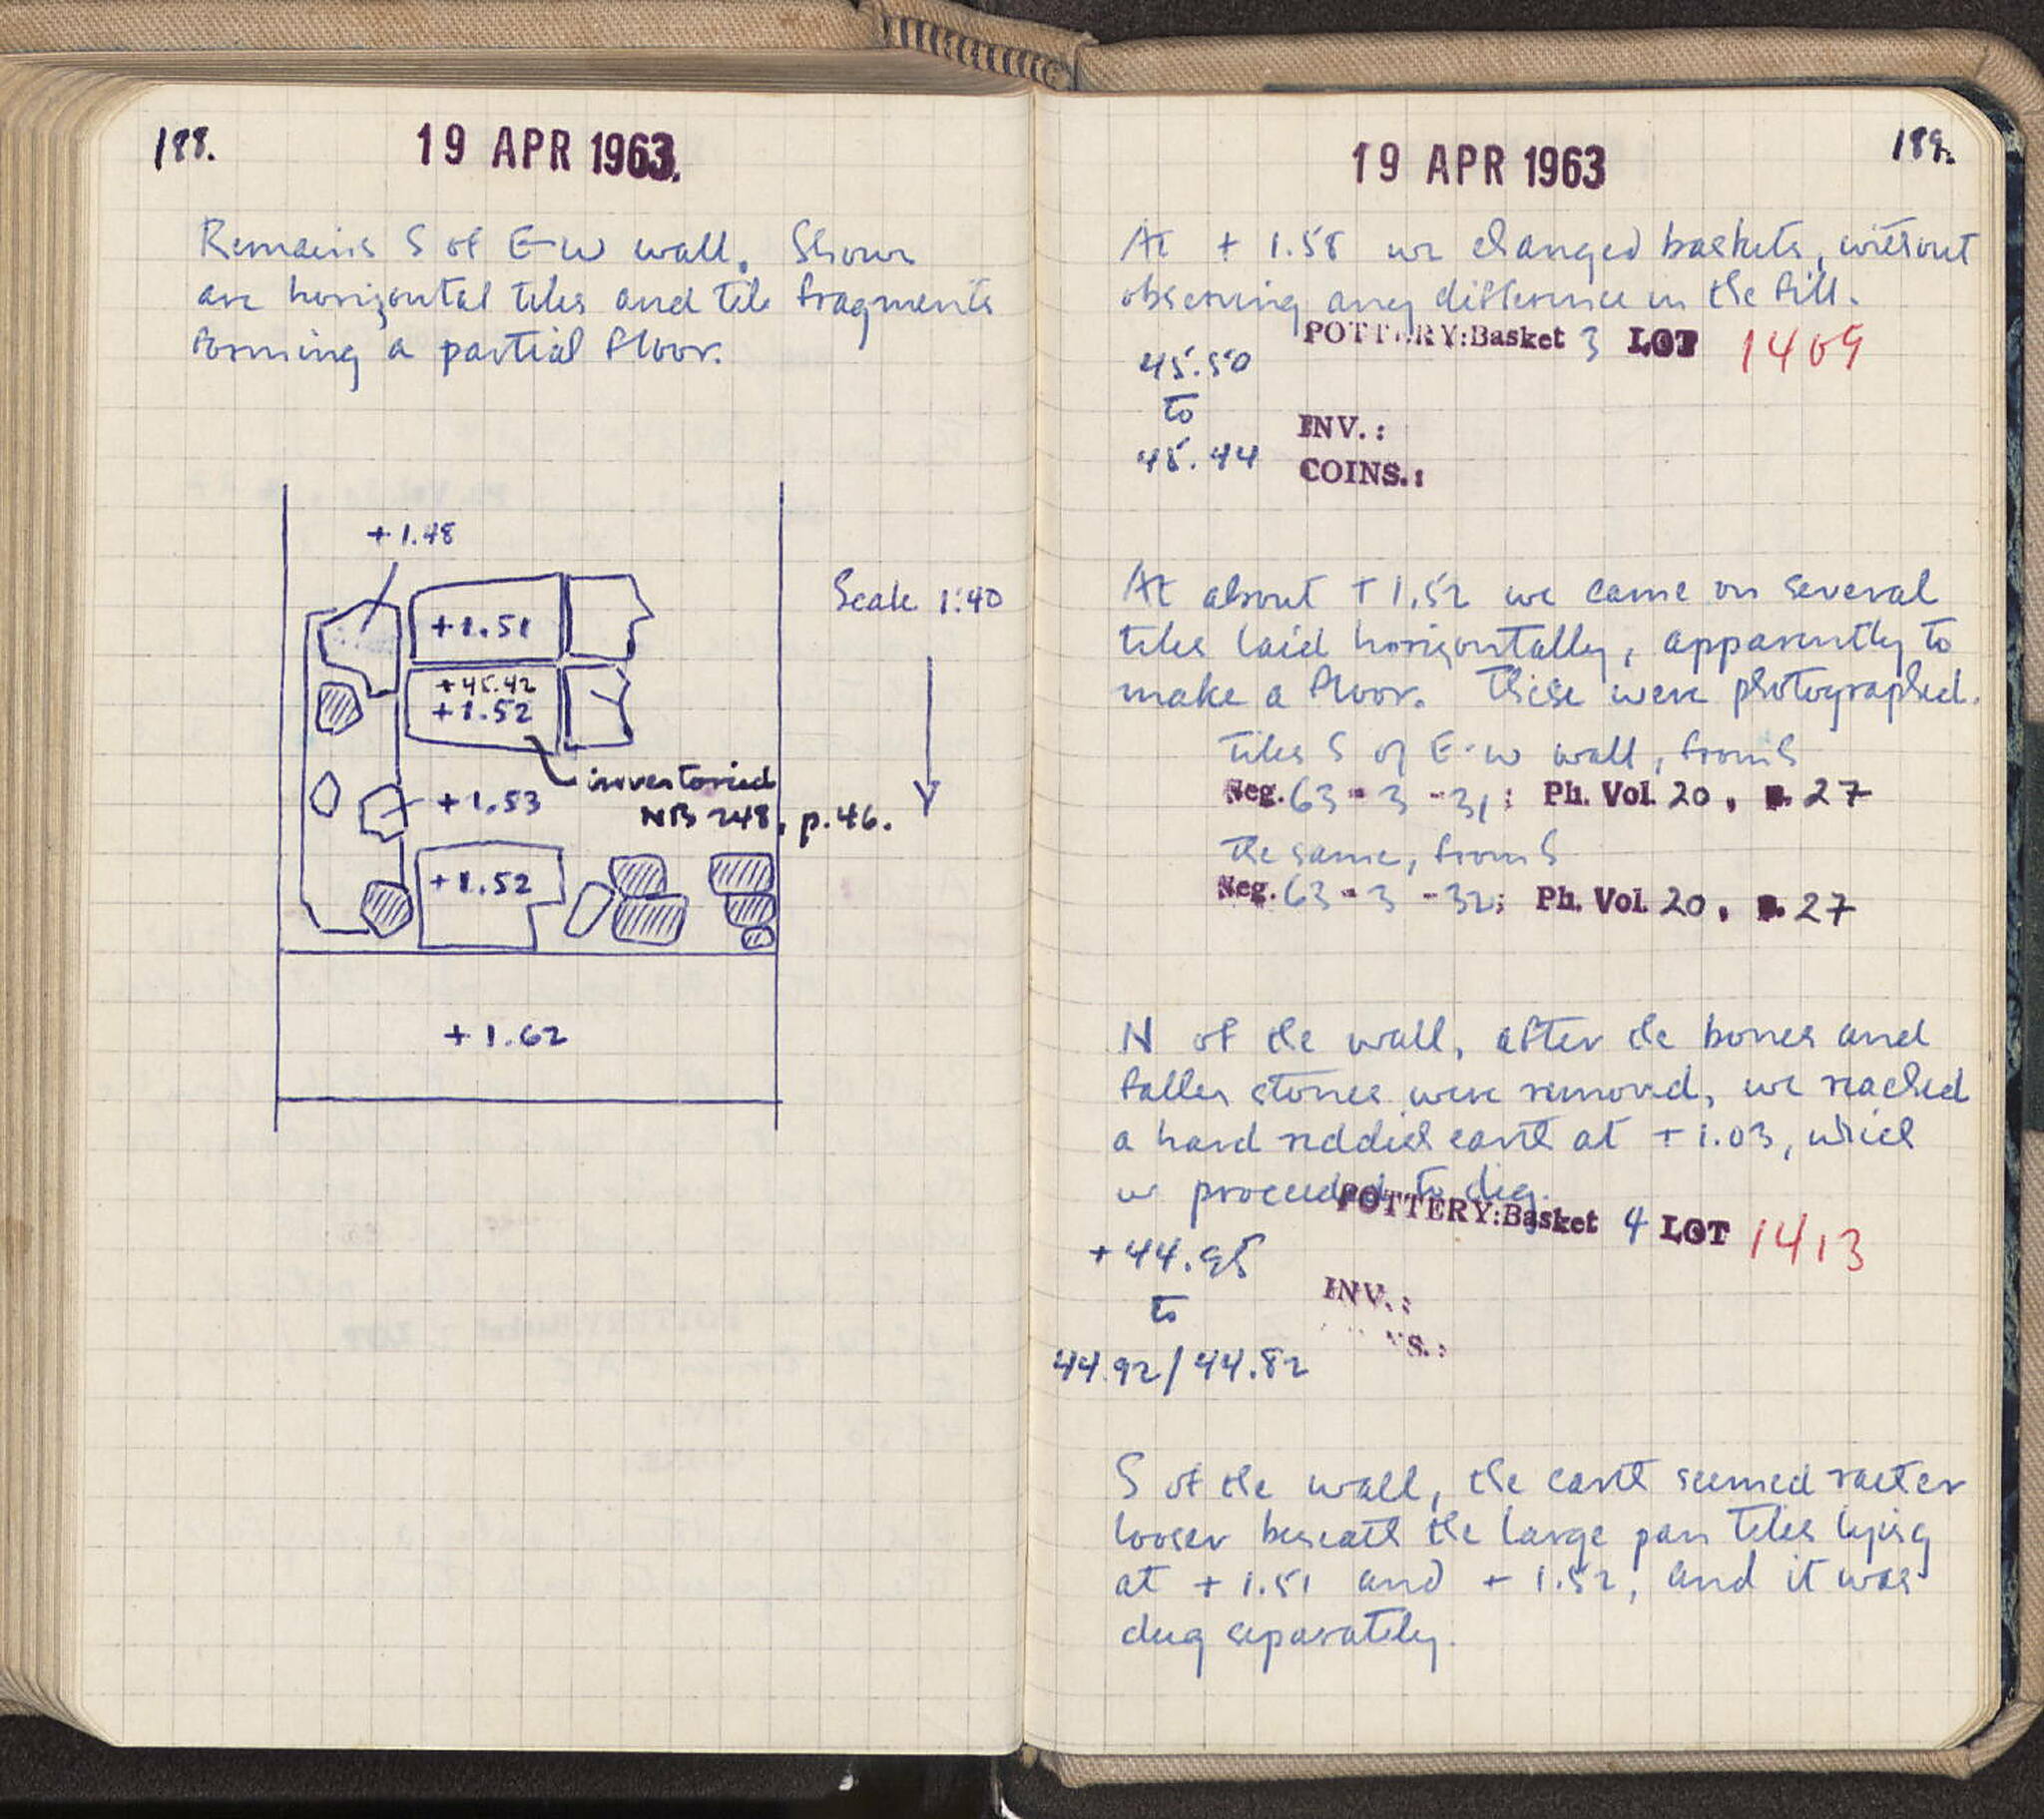 188.
19 APR 1963.
Remains S of E-W wall. Shown
are horizontal tiles and tile fragments
forming a partial floor.
+ 1.48
+1.51
Scale 1:40
+45.42
+1.52
inventoried
+1.53
NB 248, p.46.
+1.52
+ 1.62
189.
19 APR 1963
At + 1.58 we changed baskets, without
observing any difference in the fill.
POTTERY:Basket 3 LOT 1409
45.50
to
45.44
INV.:
COINS.:
At about + 1.52 we came on several
tiles laid horizontally, apparently to
make a floor. These were photographed.
Tiles S of E-W wall, from S
Neg. 63-3-31; Ph. Vol. 20, p. 27
The same, from S
Neg. 63-3-32; Ph. Vol. 20, p. 27
N of the wall, after the bones and
fallen stones were removed, we reached
a hard reddish earth at + 1.03, which
we proceeded to dig.
POTTERY:Basket 4 LOT 1413
+44.95
to
44.92/44.82
INV.:
S.:
S of the wall, the earth seemed rather
looser beneath the large pan tiles lying
at + 1.51 and + 1.52, and it was
dug separately.